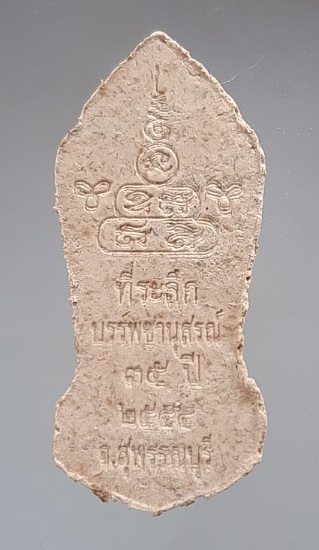 ที่ระลึก
บรรพชานุสรณ์
๓๕ ปี
๒๕๕๔
จ.สุพรรณบุรี